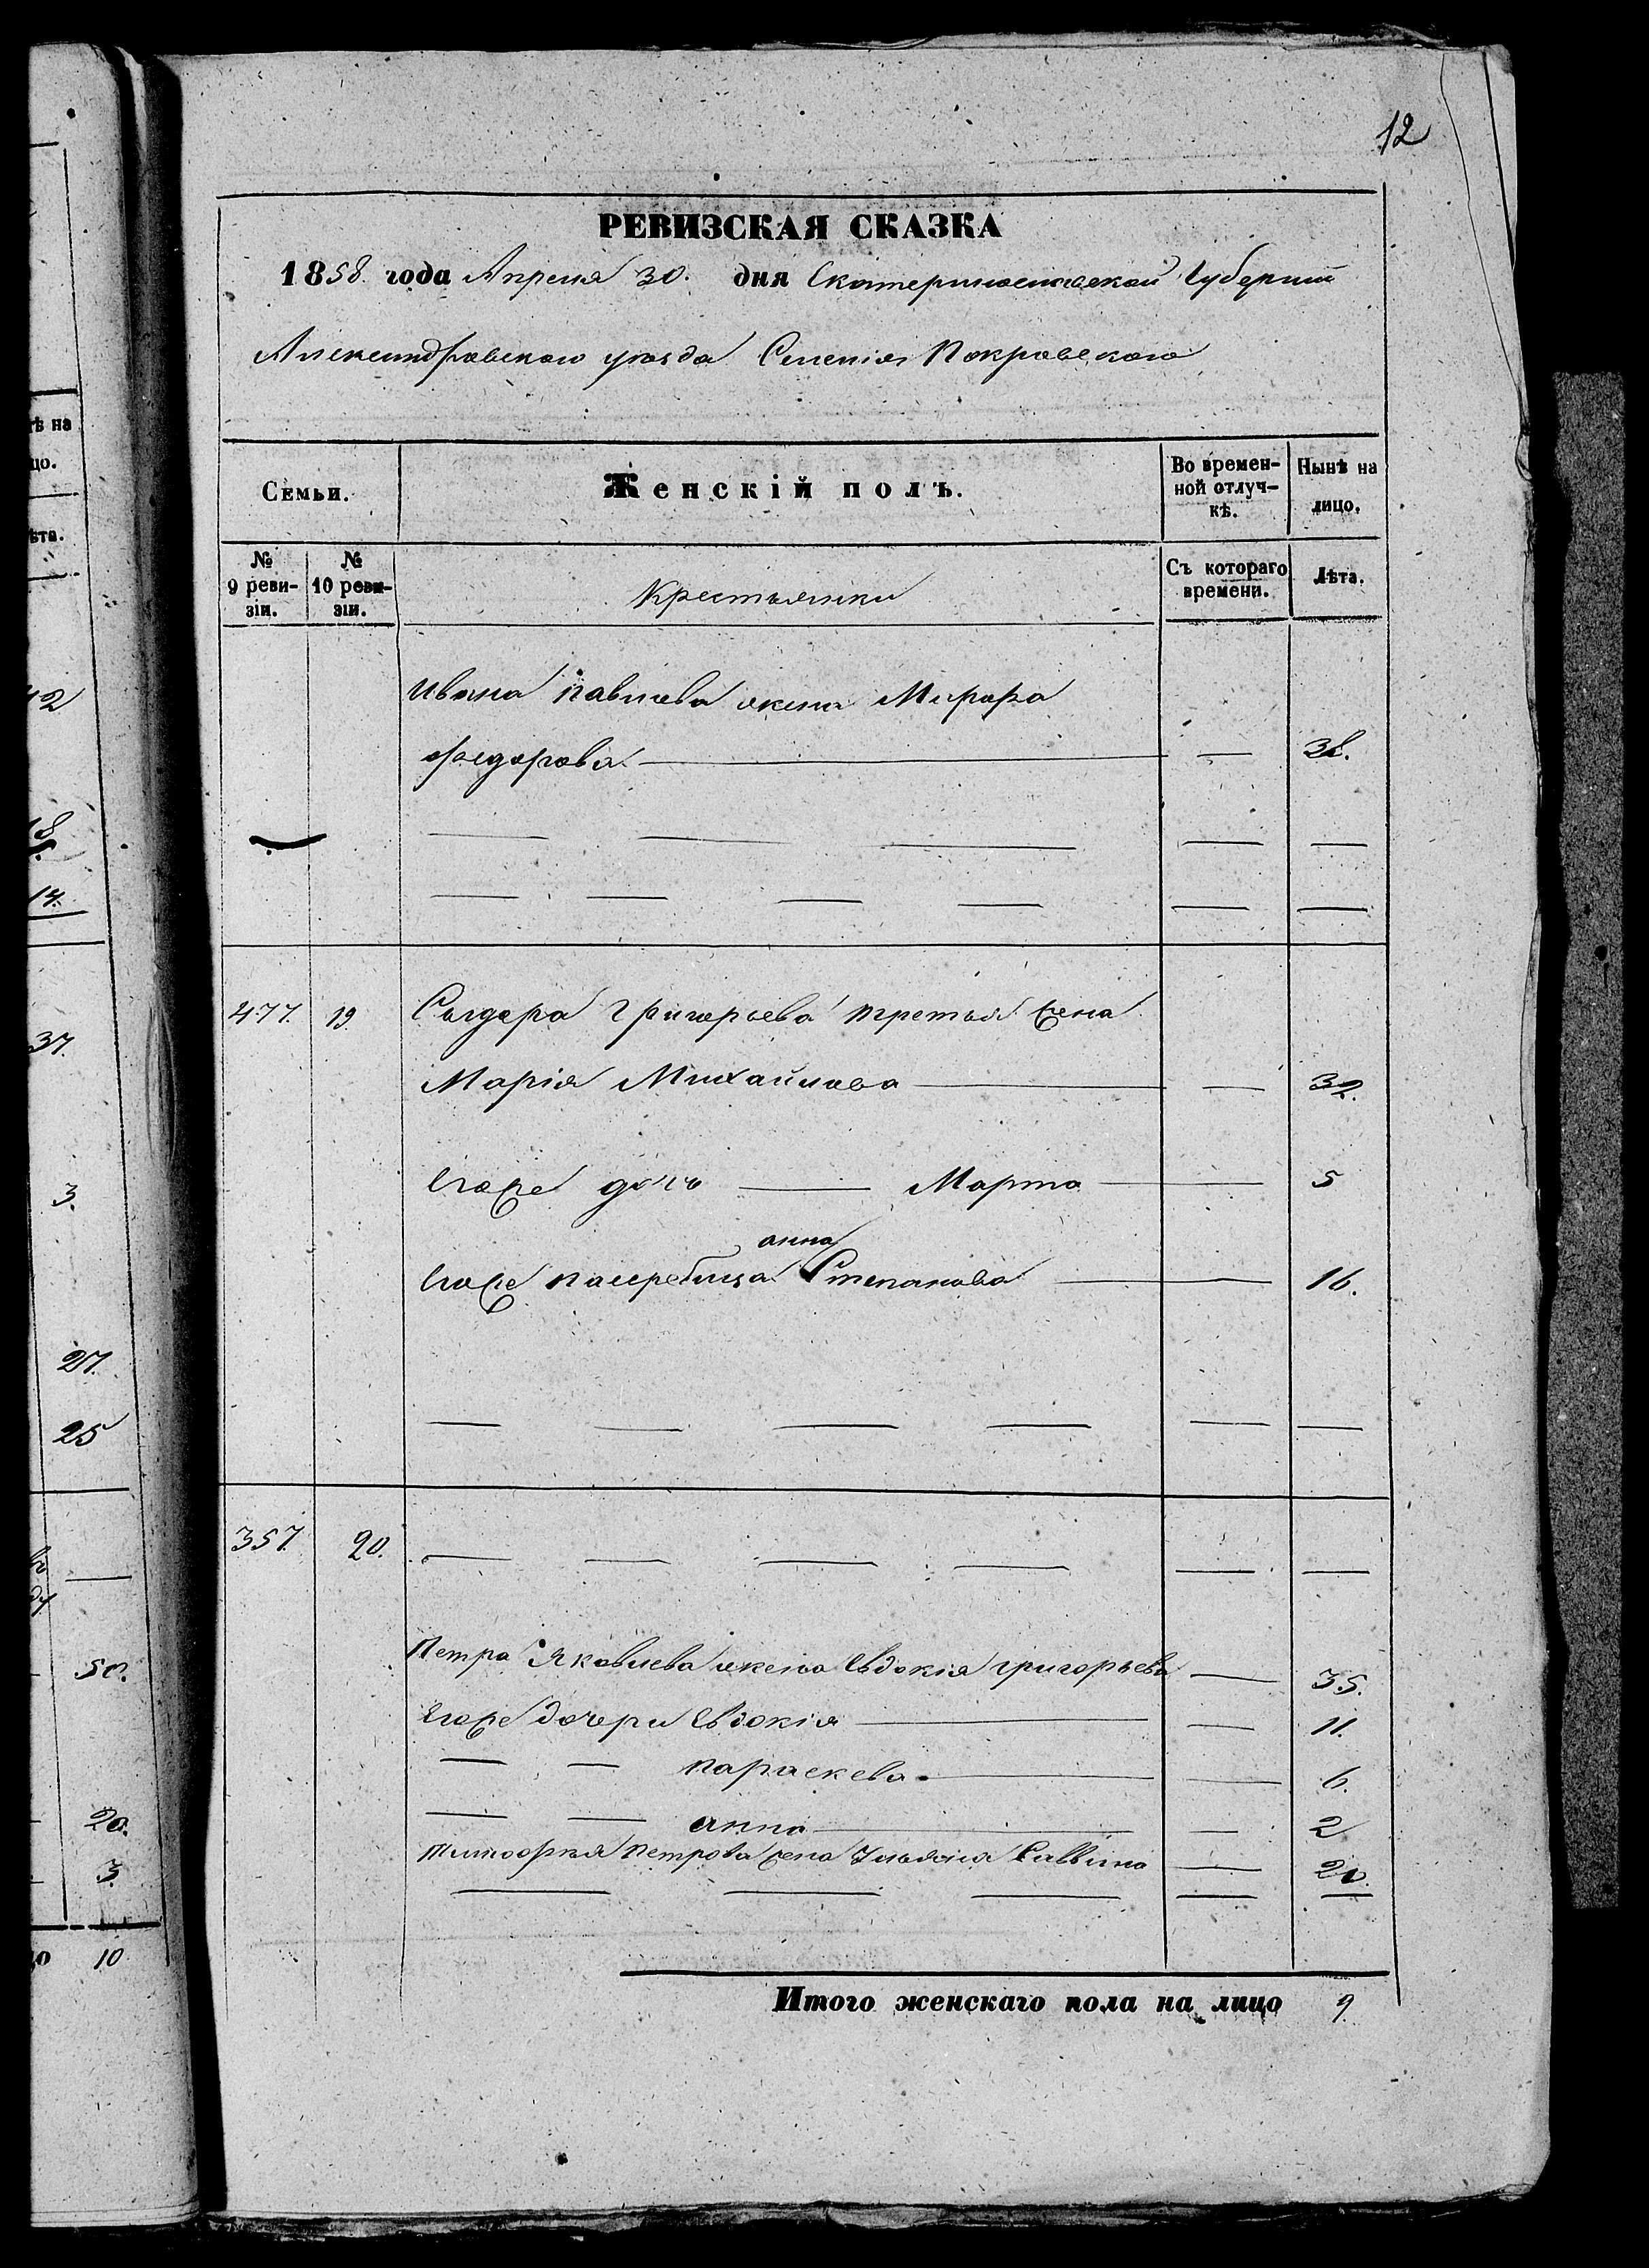 12
РЕВИЗСКАЯ СКАЗКА
1858. года Апреля 30. дня Екатеринославской Губернии
Александровскаго уѣзда Селенія Покровскаго
Семьи.
Женскій полъ.
Во времен-
ной отлуч-
кѣ.
Нынѣ на
лицо.
№
9 реви-
зіи.
№
10 реви-
зіи.
Крестьянки
Съ котораго
времени.
Лѣта.
Ивана Павлова жена
Федорова — — 38.
477. 19 Сыдора Григорьева третья жена
Марія Михайлова — — 32.
Егоже дочь — Марта — 5
анна
Егоже пасербица Степанова — 16.
357. 20.
Петра Яковлева жена Евдокія григорьева — 35.
Егоже дочери Евдокія — — 11.
— — параскева — — 6.
— — анна — — 2
Тимофея Петрова жена Ульяна Саввина — 20.
Итого женскаго пола на лицо 9.
ѣ на
цо.
ѣта.
42
18.
14.
37.
3.
27.
25
50.
20.
3.
цо 10